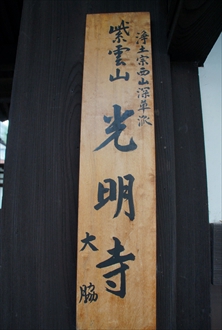 浄土宗西山深草派
紫雲山
光明寺
大脇